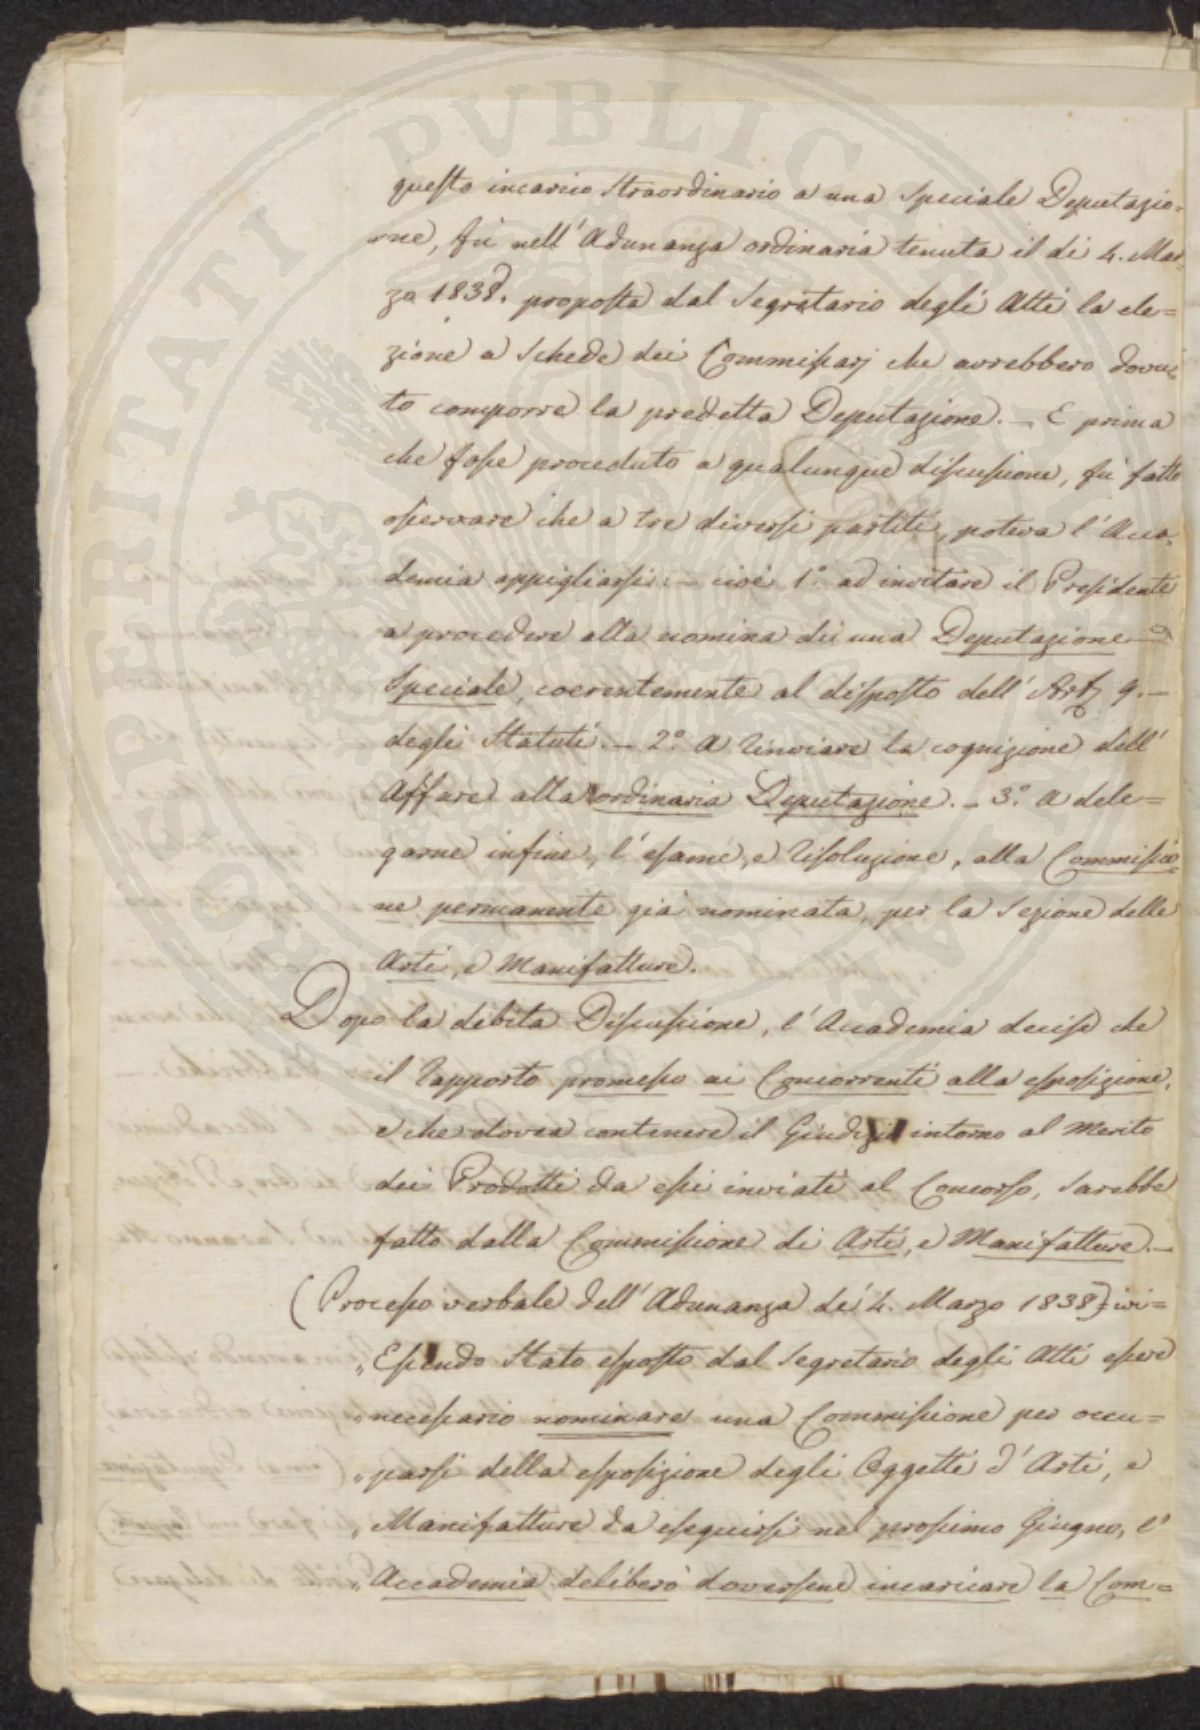 questo incarico straordinario a una speciale Deputazio=
=ne, fù nell'Adunanza ordinaria tenuta il di 4. Mar=
zo 1838. proposta dal Segretario degli Atti la ele=
zione a schede dei Commissarj che avrebbero dovu=
to comporre la predetta Deputazione. — E prima
che fosse proceduto a qualunque discussione, fù fatto
osservare che a tre diversi partiti, poteva l'Acca=
demia appigliarsi: — cioè 1.° ad invitare il Presidente
a procedere alla nomina di una Deputazione
Speciale, coerentemente al disposto dell'Art. 9. —
degli Statuti. — 2.° A rinviare la cognizione dell'
Affare alla ordinaria Deputazione. — 3.° A dele=
garne infine, l'esame, e risoluzione, alla Commissio=
ne permanente già nominata, per la Sezione delle
Arti, e Manifatture.
Dopo la debita Discussione, l'Accademia decise che
il rapporto promesso ai Concorrenti alla esposizione,
e che dovea contenere il Giudizio intorno al merito
dei Prodotti da essi inviati al Concorso, sarebbe
fatto dalla Commissione di Arti, e Manifatture. —
(Processo verbale dell'Adunanza de' 4. Marzo 1838) ivi =
„Essendo stato esposto dal Segretario degli Atti essere
„necessario nominare una Commissione per occu=
„parsi della esposizione degli Oggetti d'Arti, e
„Manifatture da eseguirsi nel prossimo Giugno, l'
„Accademia deliberò doversene incaricare la Com=
PROSPERITATI PVBLICAE